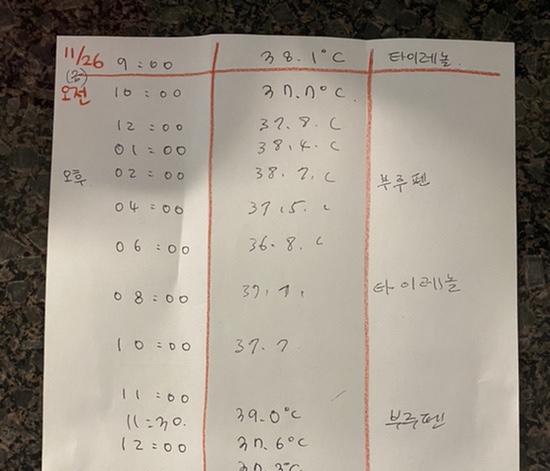 11/26 9:00 38.1°C 타이레놀
(금)
오전 10:00 37.7°C.
12:00 37.8.C
01:00 38.4.C
오후 02:00 38.7.C 부루펜
04:00 37.5.C
06:00 36.8.C
08:00 37.7. 타이레놀
10:00 37.7
11:00
11:30. 39.0°C 부루펜
12:00 37.6°C